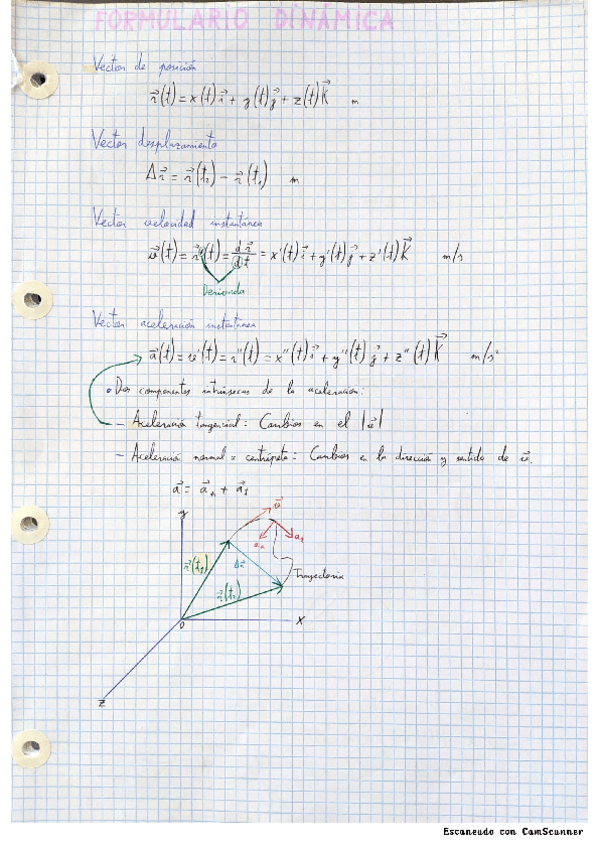 FORMULARIO DINÁMICA
Vector de posición
r⃗(t) = x(t)i⃗ + y(t)j⃗ + z(t)K⃗ m
Vector desplazamiento
Δr⃗ = r⃗(t₂) - r⃗(t₁) m
Vector velocidad instantánea
v⃗(t) = r⃗'(t) = dr⃗/dt = x'(t)i⃗ + y'(t)j⃗ + z'(t)K⃗ m/s
Derivada
Vector aceleración instantánea
a⃗(t) = v'(t) = r''(t) = x''(t)i⃗ + y''(t)j⃗ + z''(t)K⃗ m/s²
• Dos componentes intrínsecas de la aceleración:
- Aceleración tangencial: Cambios en el |v⃗|
- Aceleración normal = centrípeta: Cambios en la dirección y sentido de v⃗.
a⃗ = a⃗ₙ + a⃗
y
v⃗
Δr⃗
r⃗(t₁)
r⃗(t₂)
Trayectoria
0
X
Z
Escaneado con CamScanner